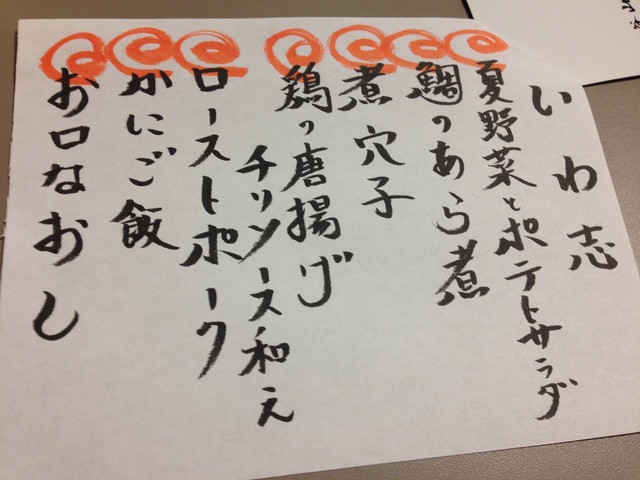 いわ志
夏野菜とポテトサラダ
鯛のあら煮
煮穴子
鶏の唐揚げ
チリソース和え
ローストポーク
かにご飯
お口なおし